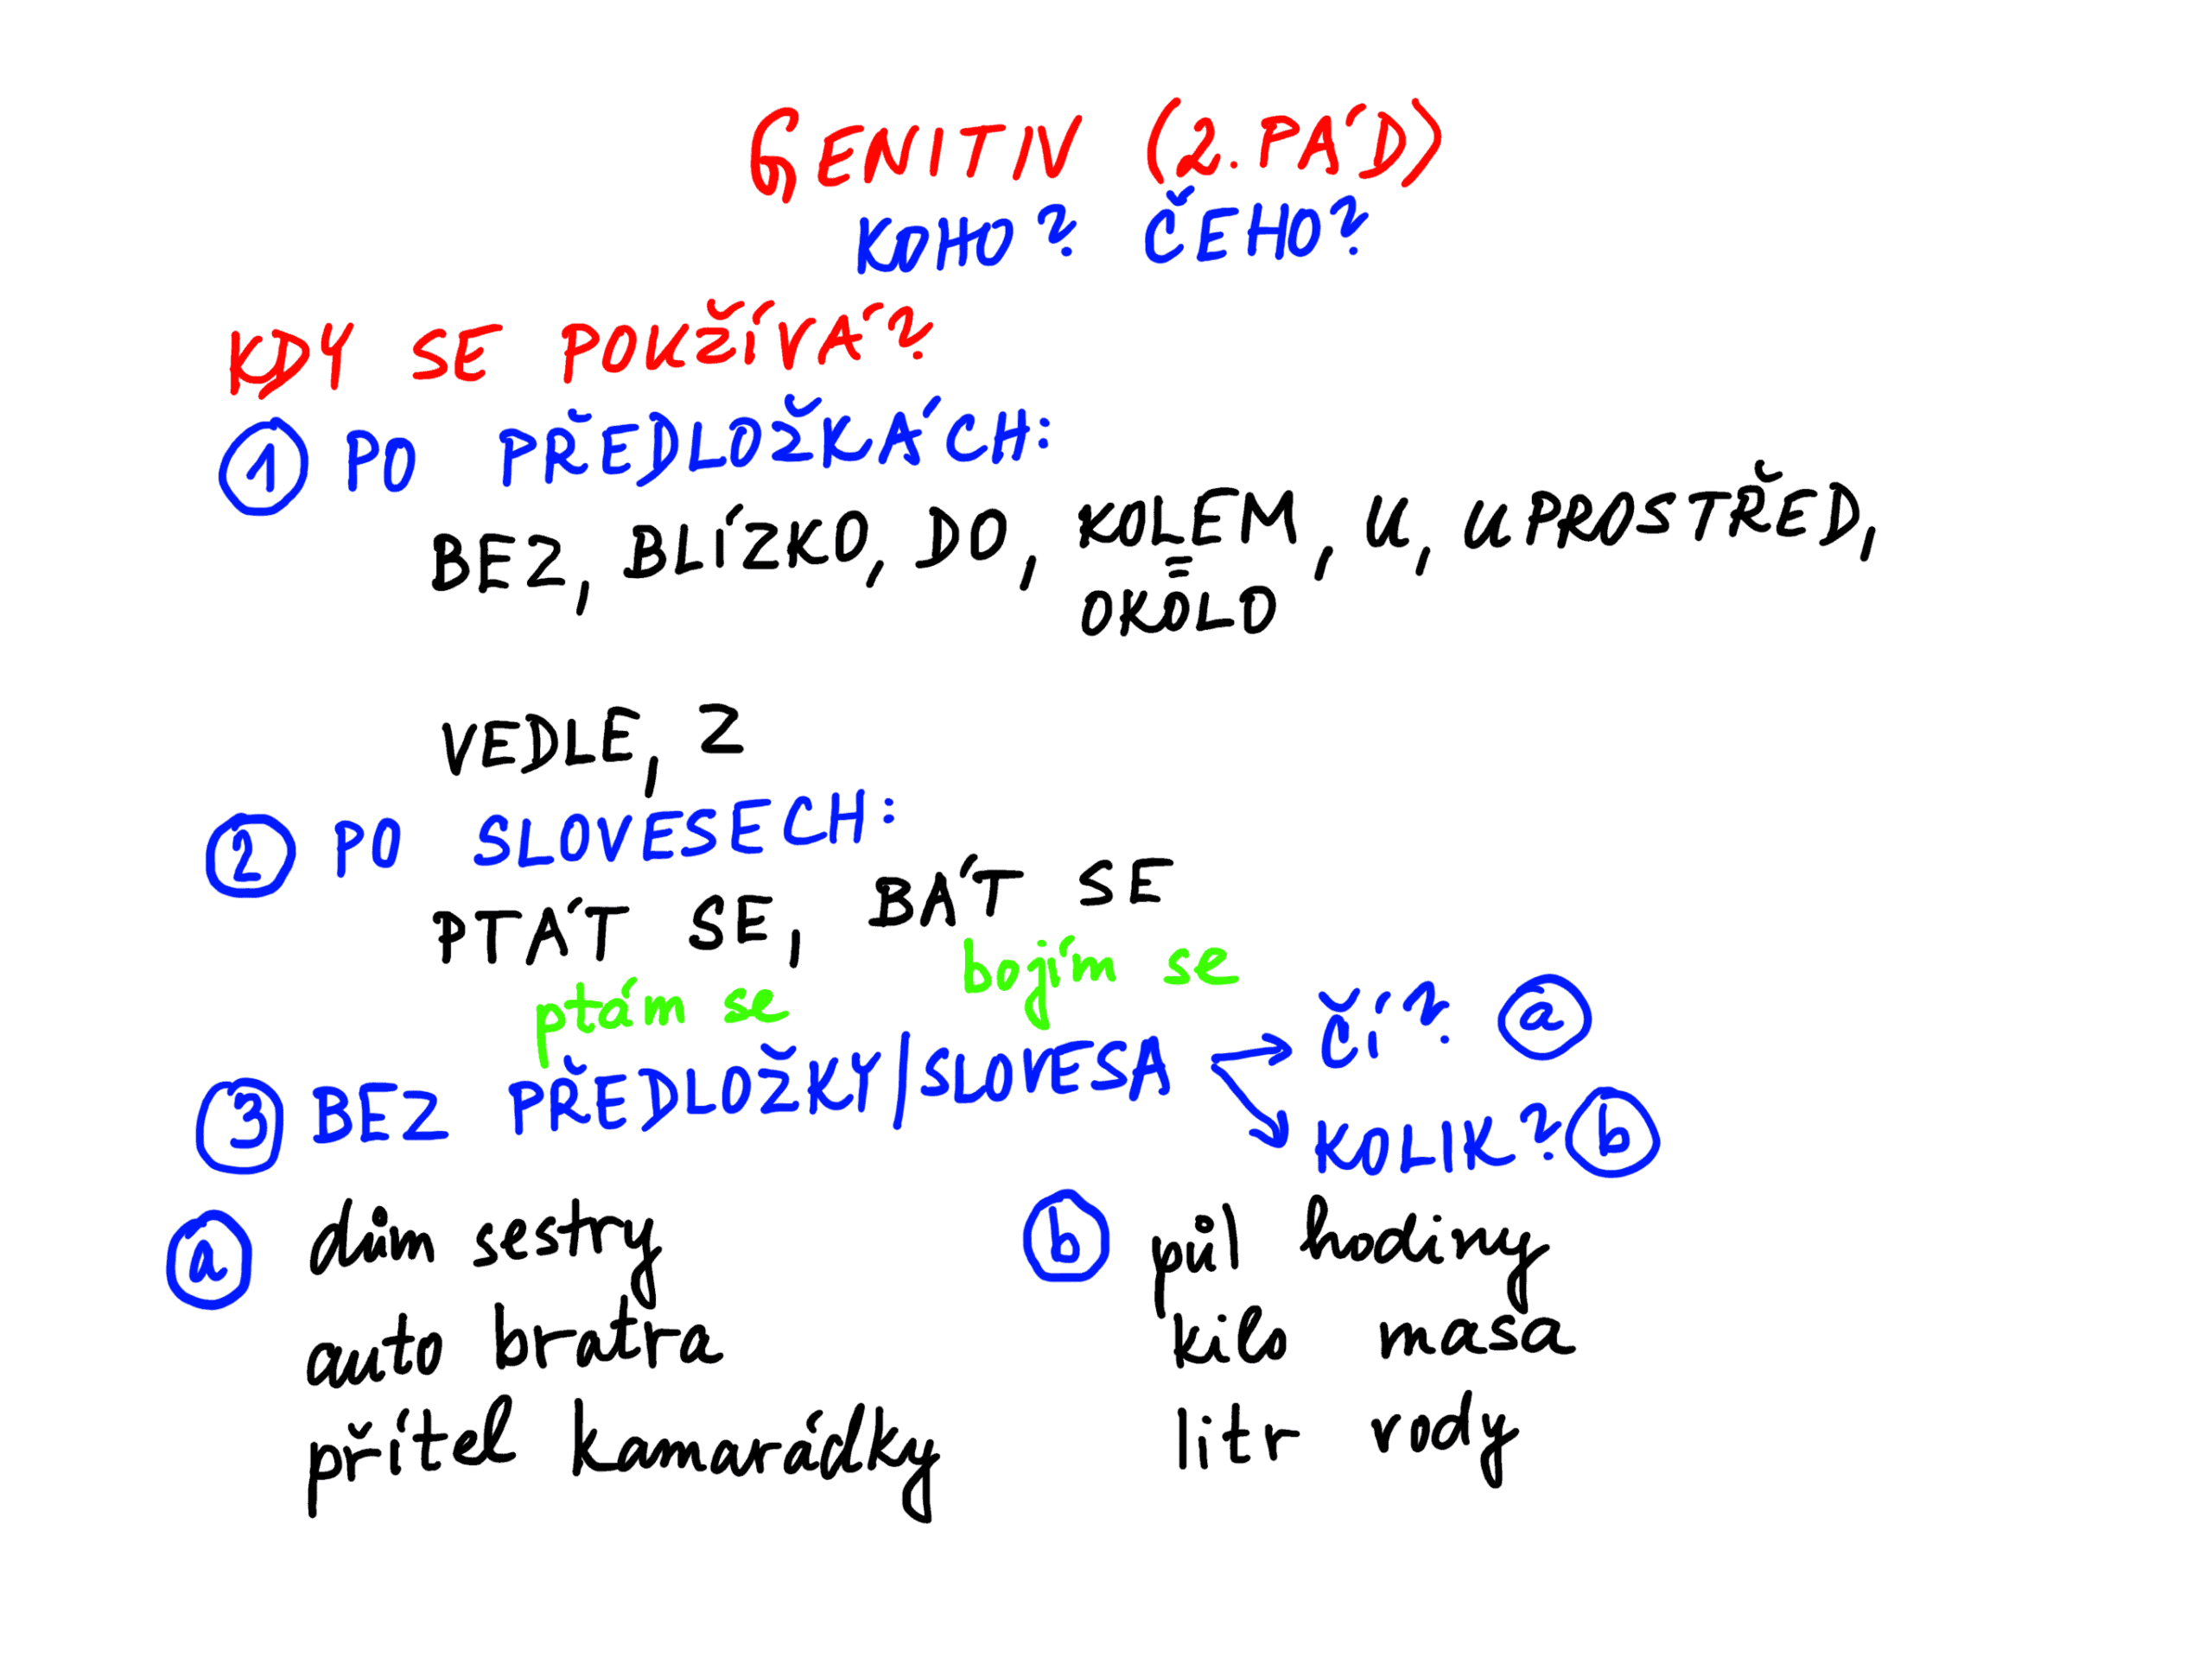 GENITIV (2. PÁD)
KOHO? ČEHO?
KDY SE POUŽÍVÁ?
1 PO PŘEDLOŽKÁCH:
BEZ, BLÍZKO, DO, KOLEM, U, UPROSTŘED,
=
OKOLO
VEDLE, Z
2 PO SLOVESECH:
PTÁT SE, BÁT SE
ptám se bojím se
3 BEZ PŘEDLOŽKY/SLOVESA ČÍ? a
KOLIK? b
a dům sestry
auto bratra
přítel kamarádky
b půl hodiny
kilo masa
litr vody